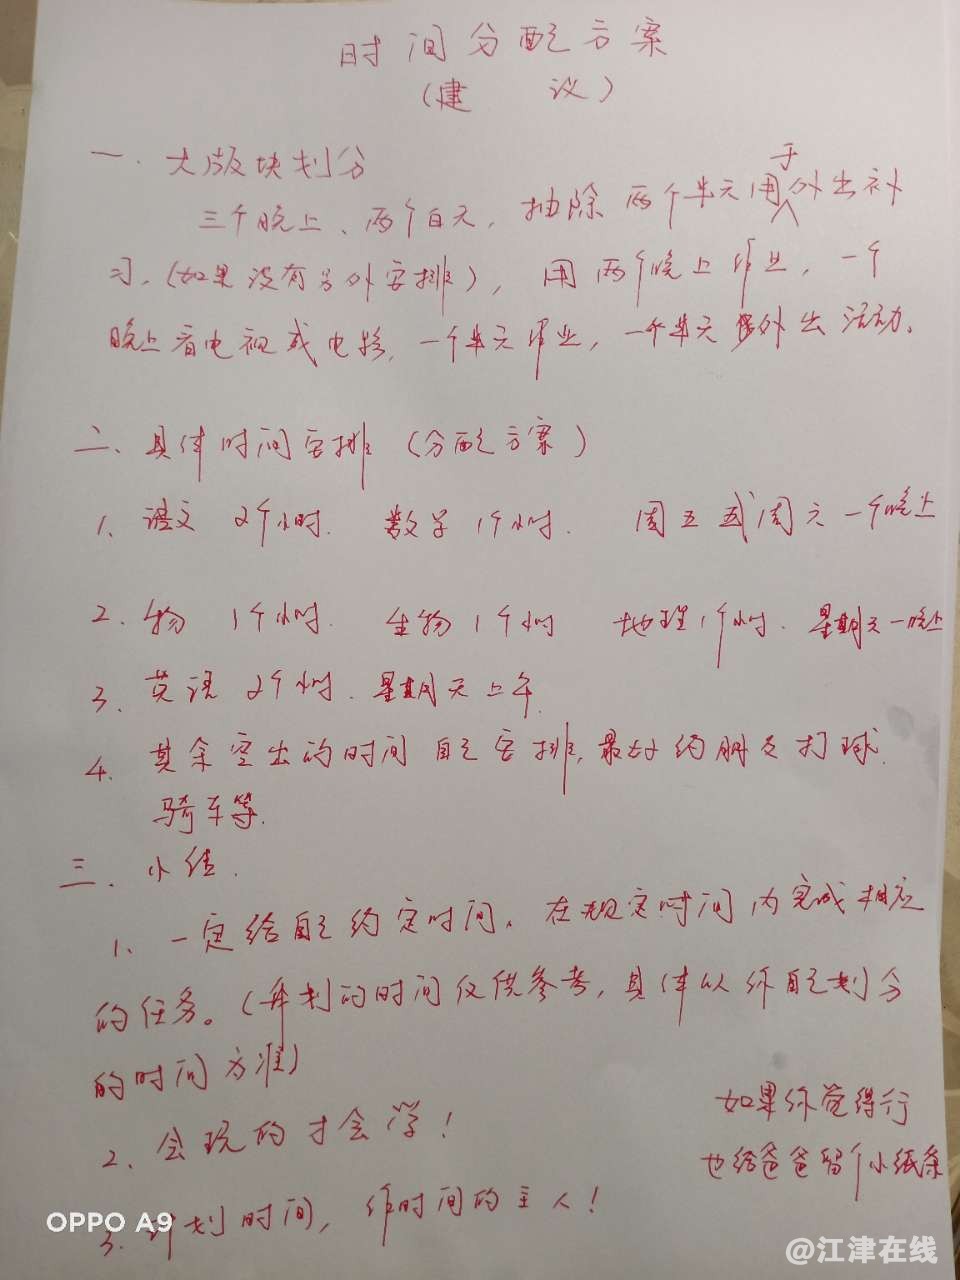 时间分配方案
(建 议)
一、大版块划分
三个晚上、两个白天,抽除两个单元用于外出补
习,(如果没有另外安排),用两个晚上作业,一个
晚上看电视或电影,一个单元作业,一个单元外出活动。
二、具体时间安排(分配方案)
1、语文 2个小时. 数学1个小时. 周五或周六一个晚上
2、物 1个小时. 生物1个小时 地理1个小时. 星期天一晚上
3、英语 2个小时. 星期天上午.
4、其余空出的时间自己安排,最好约朋友打球.
骑车等.
三、小结.
1、一定给自己约定时间。在规定时间内完成相应
的任务。(计划的时间仅供参考,具体以你自己划分
的时间为准)
2、会玩的才会学!
3.计划时间,作时间的主人!
如果你觉得行
也给爸爸留个小纸条
OPPO A9
@江津在线